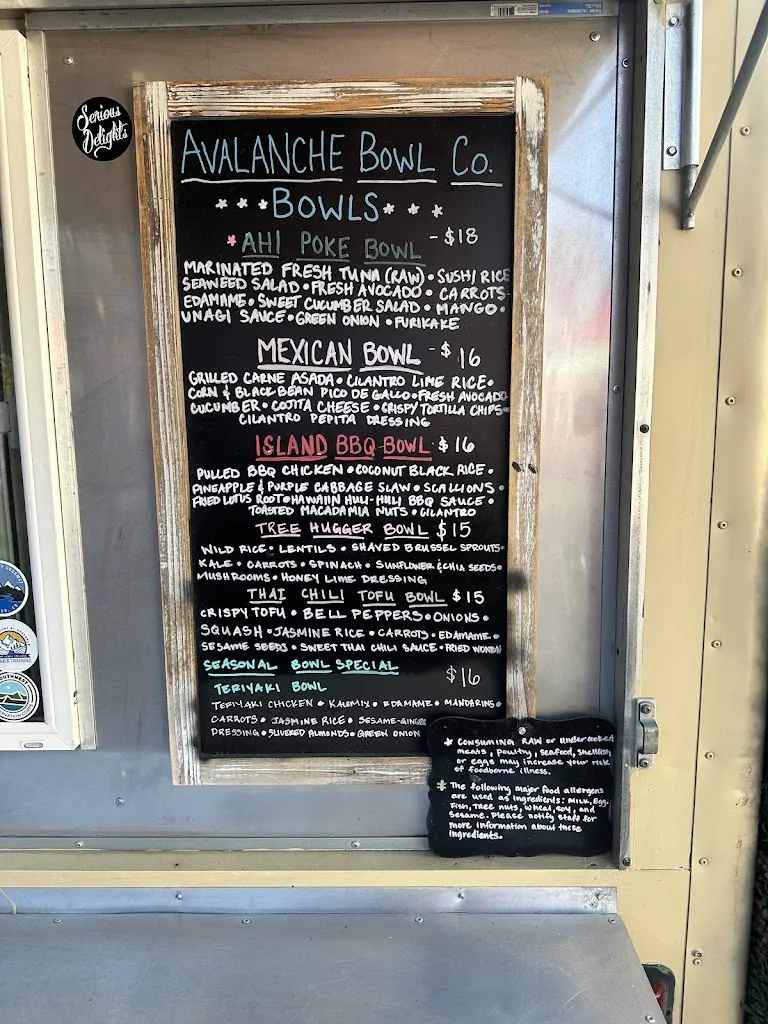 Serious
Delights
AVALANCHE BOWL CO.
BOWLS
AHI POKE BOWL - $18
MARINATED FRESH TUNA (RAW) • SUSHI RICE
SEAWEED SALAD • FRESH AVOCADO • CARROTS •
EDAMAME • SWEET CUCUMBER SALAD • MANGO •
UNAGI SAUCE • GREEN ONION • FURIKAKE
MEXICAN BOWL - $16
GRILLED CARNE ASADA • CILANTRO LIME RICE •
CORN & BLACK BEAN PICO DE GALLO • FRESH AVOCADO
CUCUMBER • COJITA CHEESE • CRISPY TORTILLA CHIPS •
CILANTRO PEPITA DRESSING
ISLAND BBQ BOWL $16
PULLED BBQ CHICKEN • COCONUT BLACK RICE •
PINEAPPLE & PURPLE CABBAGE SLAW • SCALLIONS •
FRIED LOTUS ROOT • HAWAIIN HULI-HULI BBQ SAUCE •
TOASTED MACADAMIA NUTS • CILANTRO
TREE HUGGER BOWL $15
WILD RICE • LENTILS • SHAVED BRUSSEL SPROUTS •
KALE • CARROTS • SPINACH • SUNFLOWER & CHIA SEEDS •
MUSHROOMS • HONEY LIME DRESSING
THAI CHILI TOFU BOWL $15
CRISPY TOFU • BELL PEPPERS • ONIONS •
SQUASH • JASMINE RICE • CARROTS • EDAMAME •
SESAME SEEDS • SWEET THAI CHILI SAUCE • FRIED WONTON
SEASONAL BOWL SPECIAL $16
TERIYAKI BOWL
TERIYAKI CHICKEN • KALE MIX • EDAMAME • MANDARINS •
CARROTS • JASMINE RICE • SESAME-GINGER
DRESSING • SLIVERED ALMONDS • GREEN ONION
* CONSUMING RAW or undercooked
meats, poultry, seafood, shellfish
or eggs may increase your risk
of foodborne illness.
* The following major food allergens
are used as ingredients: Milk, Egg,
Fish, Tree nuts, wheat, soy, and
sesame. Please notify staff for
more information about these
ingredients.